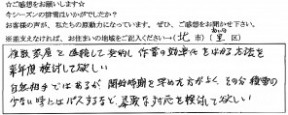 ☆ご感想をお願いします☆
今シーズンの排雪はいかがでしたか？
お客様の声が、私たちの原動力になっています。ぜひ、ご感想をお聞かせ下さい。
※差支えなければ、お住まいの地域をご記入ください（北 市）（ 区）
除雪業者と連携して契約し作業の効率化をはかる方法を
来年度検討して欲しい
自然相手ではあるが開始時期を早めた方がよく、その分積雪の
少ない時とはパスするなど柔軟な対応を検討して欲しい